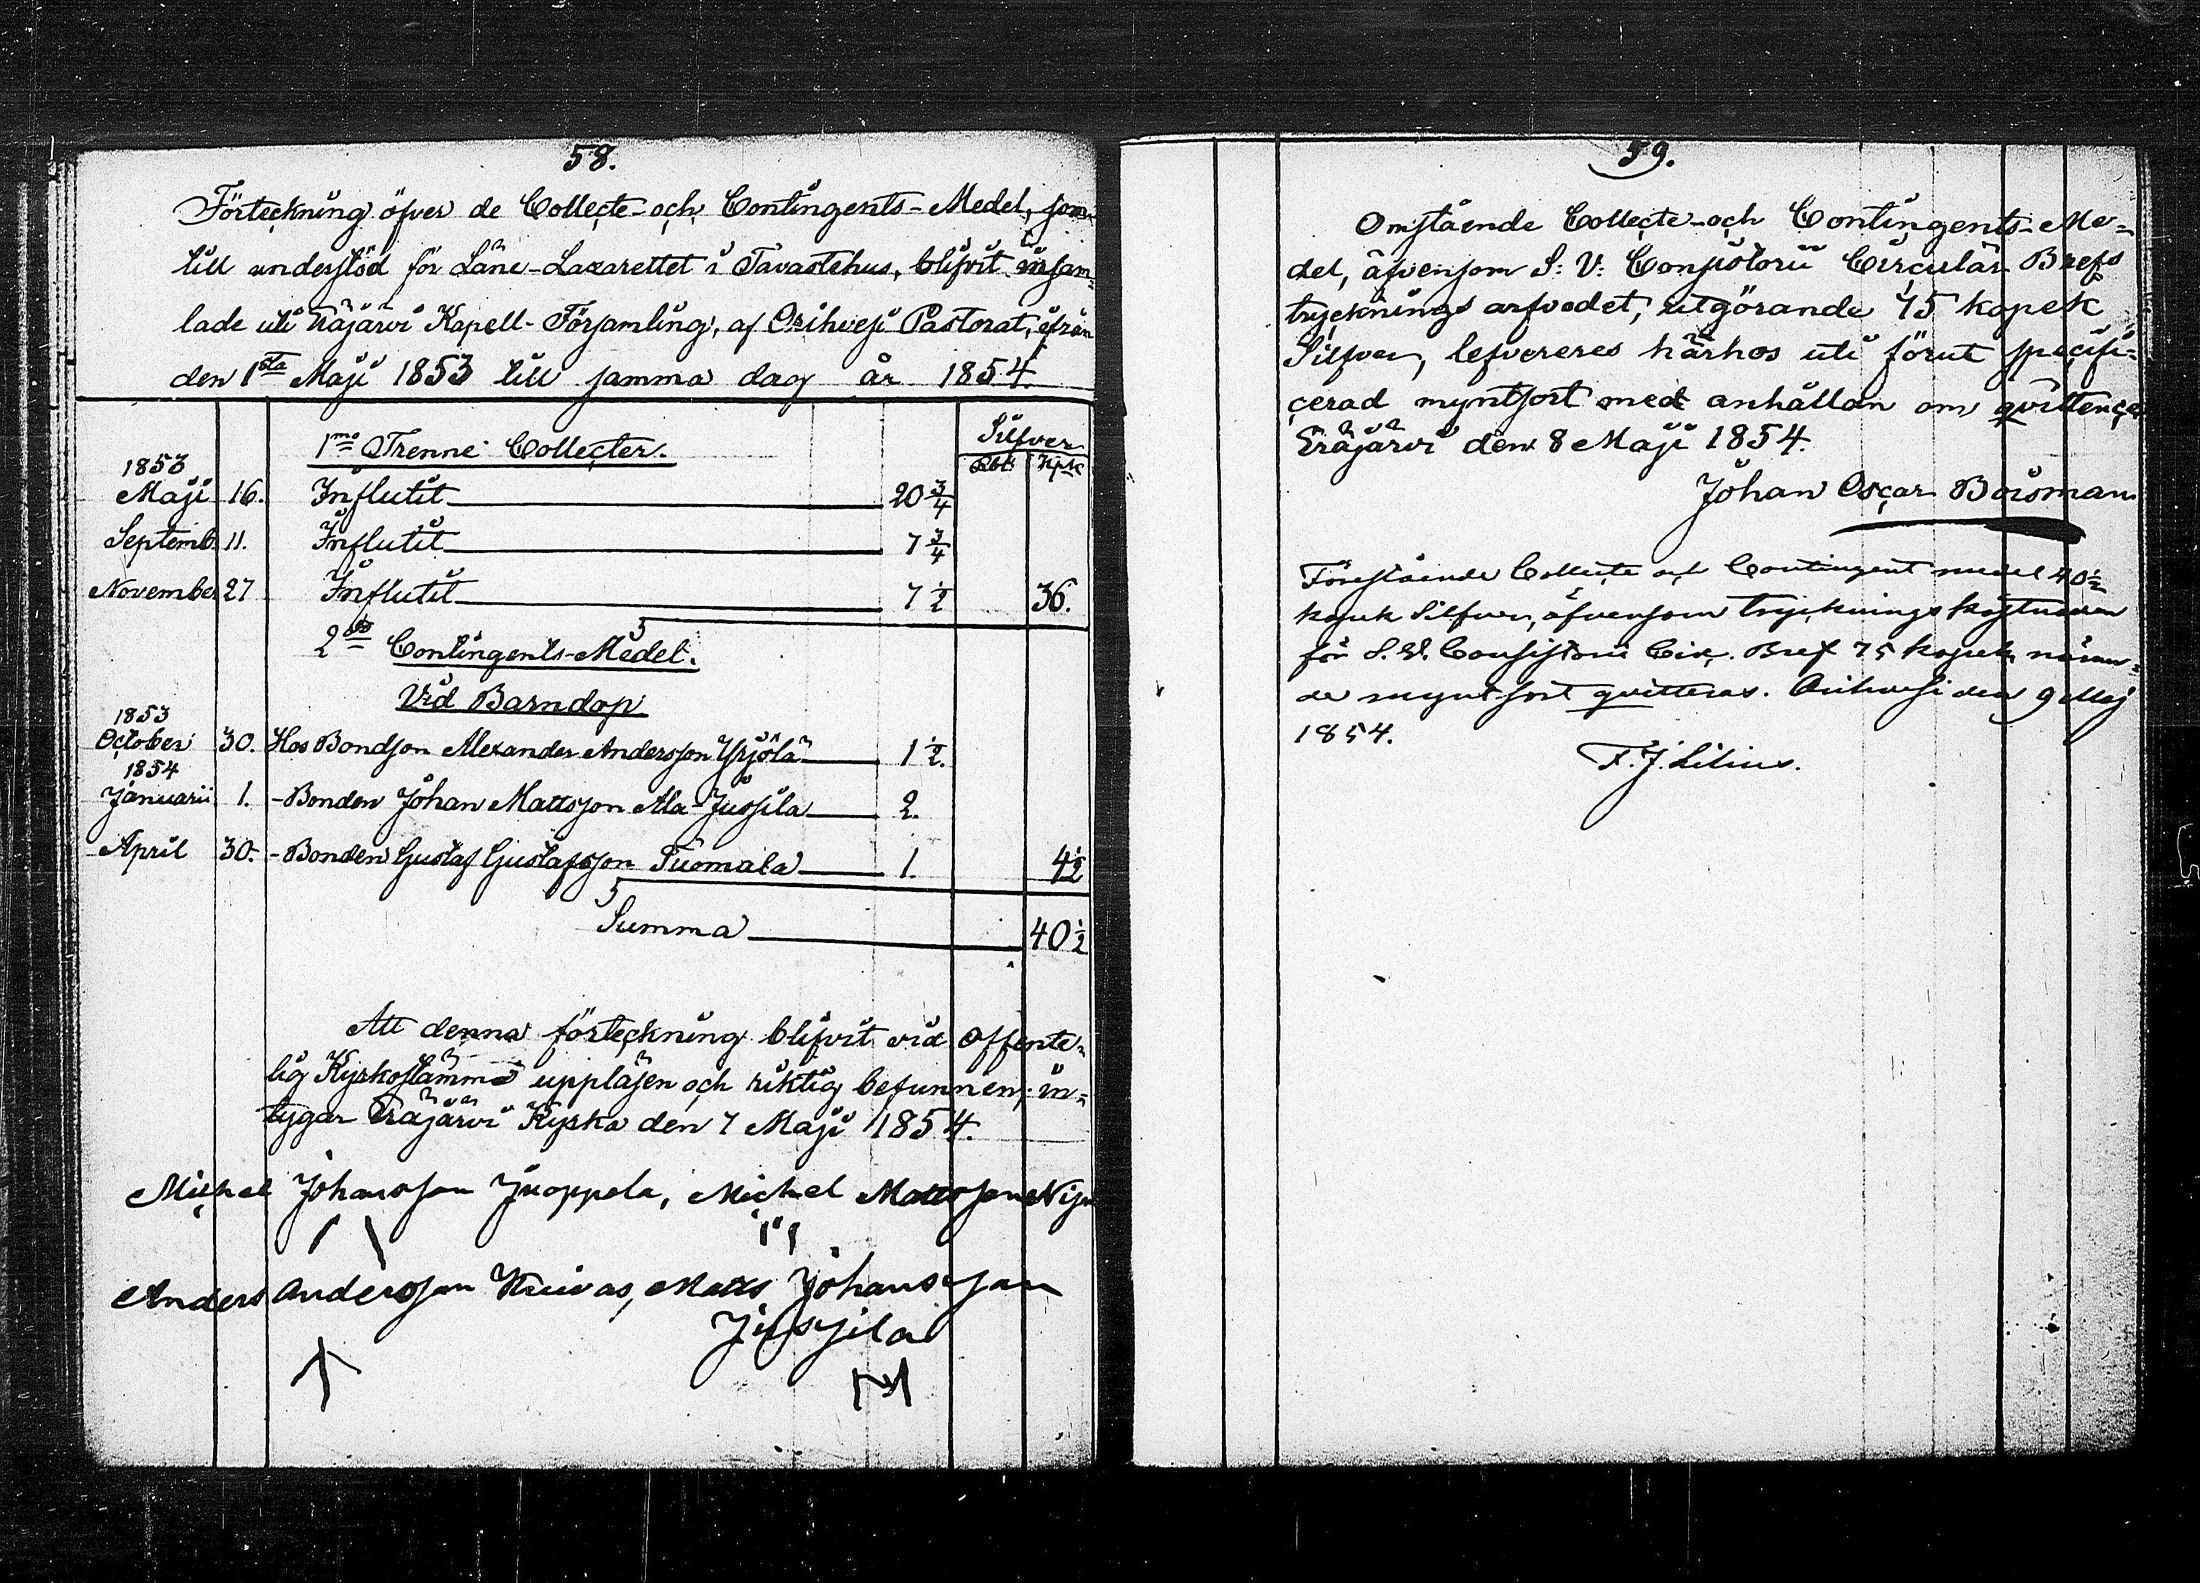 58.
Förteckning öfver de Collecte- och Contingents-Medel, som
till understöd för Läne-Lazarettet i Tavastehus, blifvit insam-
lade uti Eräjärvi Kapell-Församling, af Orihvesi Pastorat, ifrån
den 1sta Maji 1853 till samma dag år 1854.
Silfver
Rbl. Kpk
1mo Trenne Collecter.
1853
Maji 16. Influtit 20 3/4
Septemb. 11. Influtit 7 3/4
November 27 Influtit 7 1/2 36.
2do Contingents-Medel.
Vid Barndop
1853
October 30. Hos Bondson Alexander Andersson Yrjölä 1 1/2.
1854
Januarii 1. - Bonden Johan Mattsson Ala-Jussila 2.
April 30. - Bonden Gustaf Gustafsson Tuomala 1. 4 1/2
Summa 40 1/2
Att denna förteckning blifvit vid offente-
lig Kyrkostämma uppläsen och riktig befunnen, in-
tygar Eräjärvi Kyrka den 7 Maji 1854.
Michel Johansson Juoppola, Michel Mattsson
Anders Andersson Matts Johansson
Jussila
59.
Omstående Collecte- och Contingents-Me-
del, äfvensom S: V: Consistorii Circulär Brefs
tryckningsarfvodet, utgörande 75 kopek
Silfver, lefvereres härhos uti förut specifi-
cerad myntsort med anhållan om qvittence
Eräjärvi den 8 Maji 1854.
Johan Oscar Boisman
Förestående Collecte och Contingent medel 40 1/2
kopek Silfver, äfvensom tryckningskostnaden
för S. V. Consistorii Circ. Bref 75 kopek nämn-
de myntsort qvitteras. Orihvesi den 9 Maj
1854.
F. J. Lilius.